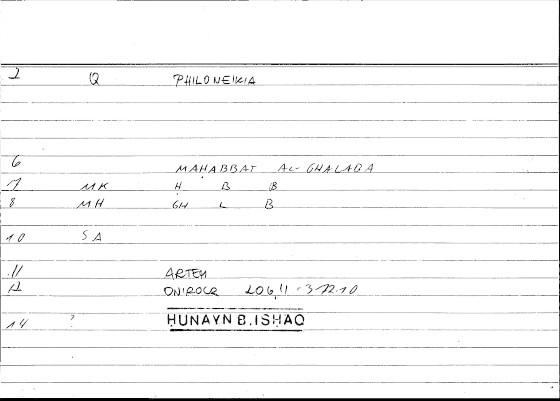 2 Q PHILONEIKIA
6 MAḤABBAT AL-GHALABA
7 MK Ḥ B B
8 MH GH L B
10 SA
11 ARTEM
12 ONIROCR 206,11
14 ? ḤUNAYN B. ISḤAQ